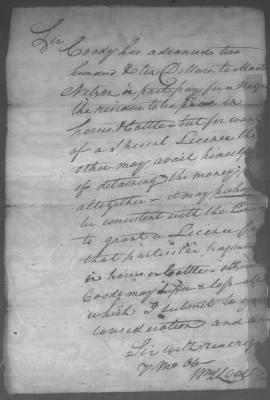 Sir
Coody has advanced two
hundred & ten Dollars to Martin
Nelson in part pay for a Negro
the residue to be paid in
horses & Cattle - but for want
of a special Licence the
other may avail himself
of detaining the money,
altogether - it may perhaps
be consistent with the
to grant a Licence for
that particular
in horses or Cattle - other
Coody may suffer a loss all
which I submit to yr
consideration and am
Sir with
yr mo Ob